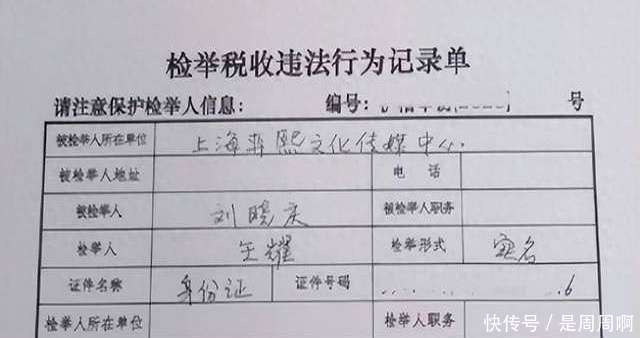 检举税收违法行为记录单
请注意保护检举人信息: 编号: 号
被检举人所在单位 上海 熙文化传媒中心
被检举人地址 电话
被检举人 刘晓庆 被检举人职务
检举人 王耀 检举形式 实名
证件名称 身份证 证件号码 6
检举人所在单位 检举人职务
快传号/是周周啊